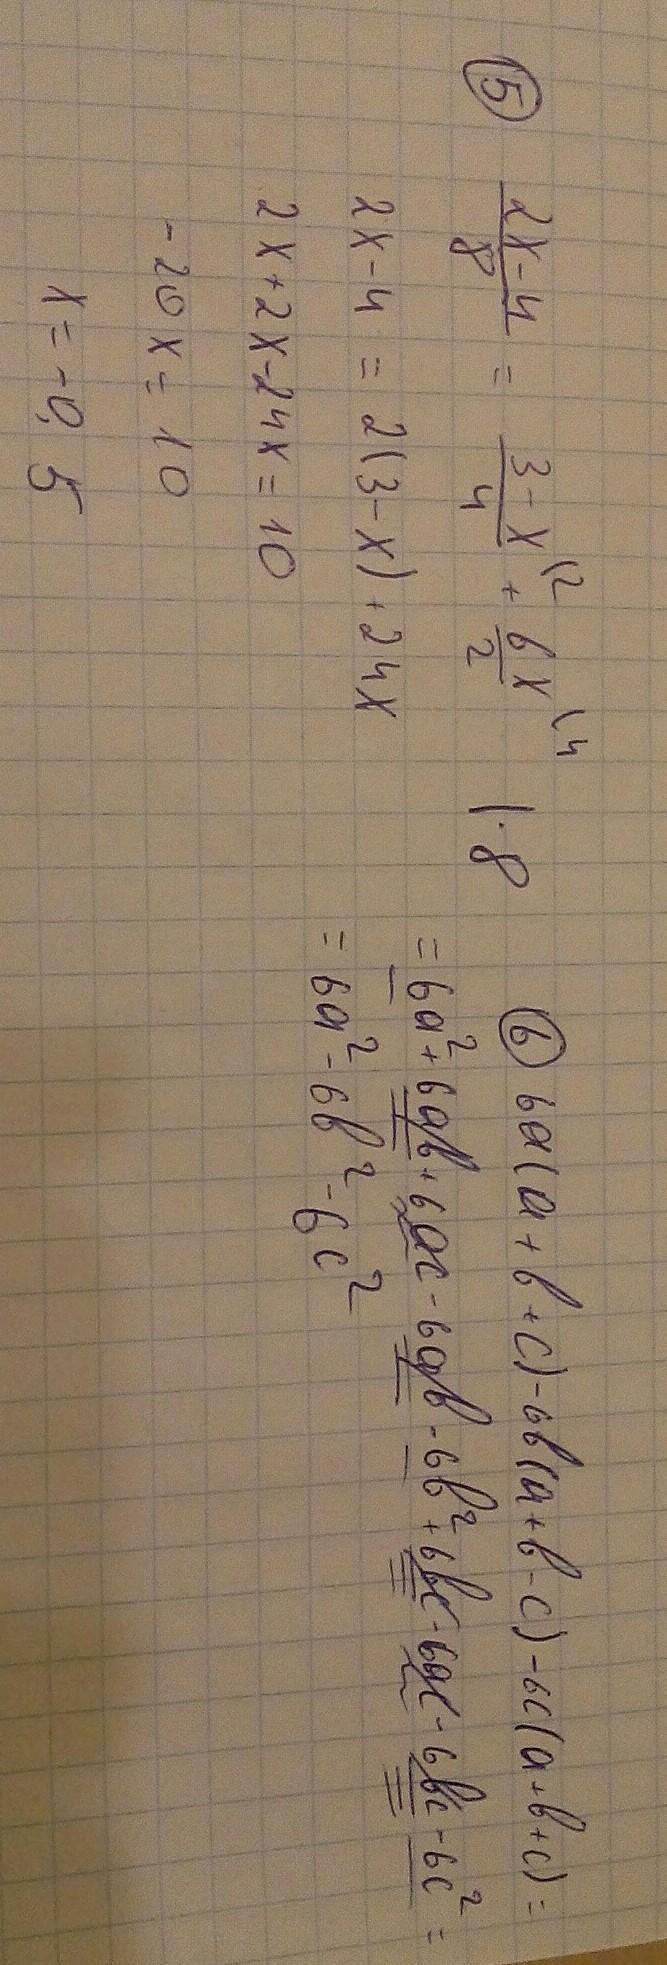 5 (2x-4)/8 = (3-x)/4 \2 + 6x/2 \4 |·8
2x-4 = 2(3-x)+24x
2x+2x-24x=10
-20x=10
x=-0,5
6 6a(a+b+c)-6b(a+b-c)-6c(a+b+c)=
=6a²+6ab+6ac-6ab-6b²+6bc-6ac-6bc-6c²=
=6a²-6b²-6c²